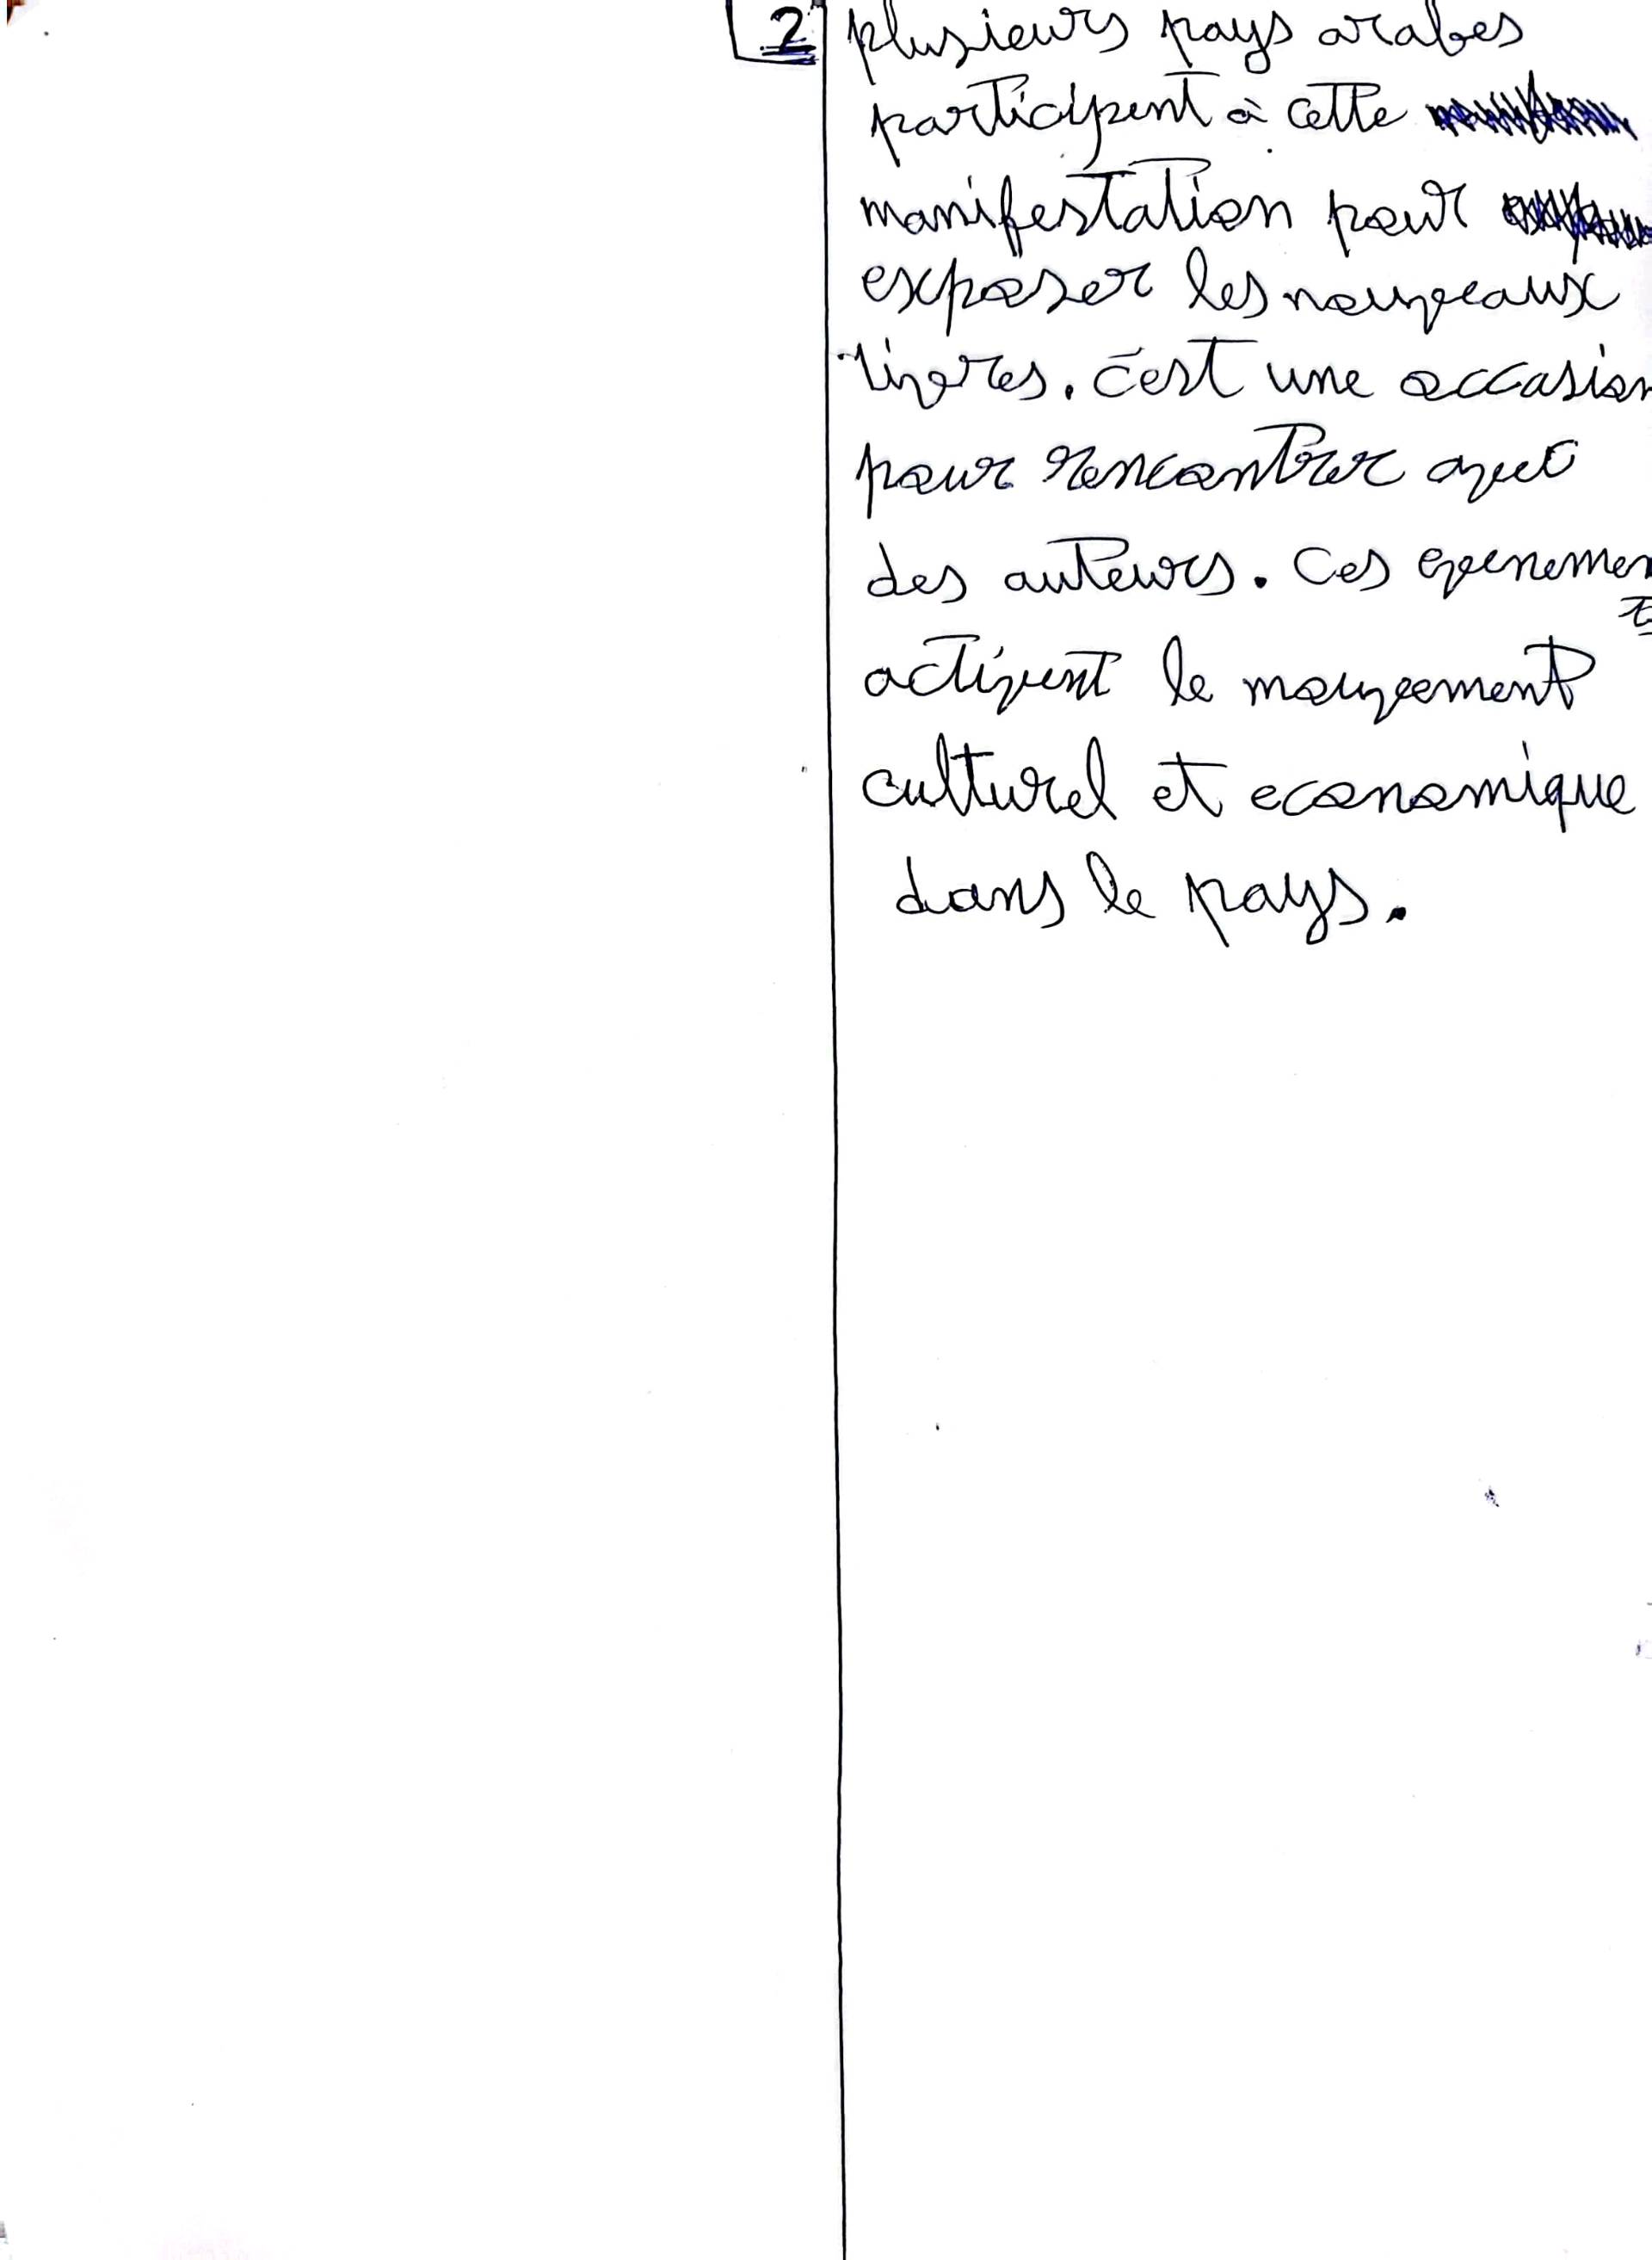 2 plusieurs pays arabes
participent à cette
manifestation pour
exposer les nouveaux
livres. c'est une occasion
pour rencontrer avec
des auteurs. Ces evenements
activent le mouvement
culturel et economique
dans le pays.